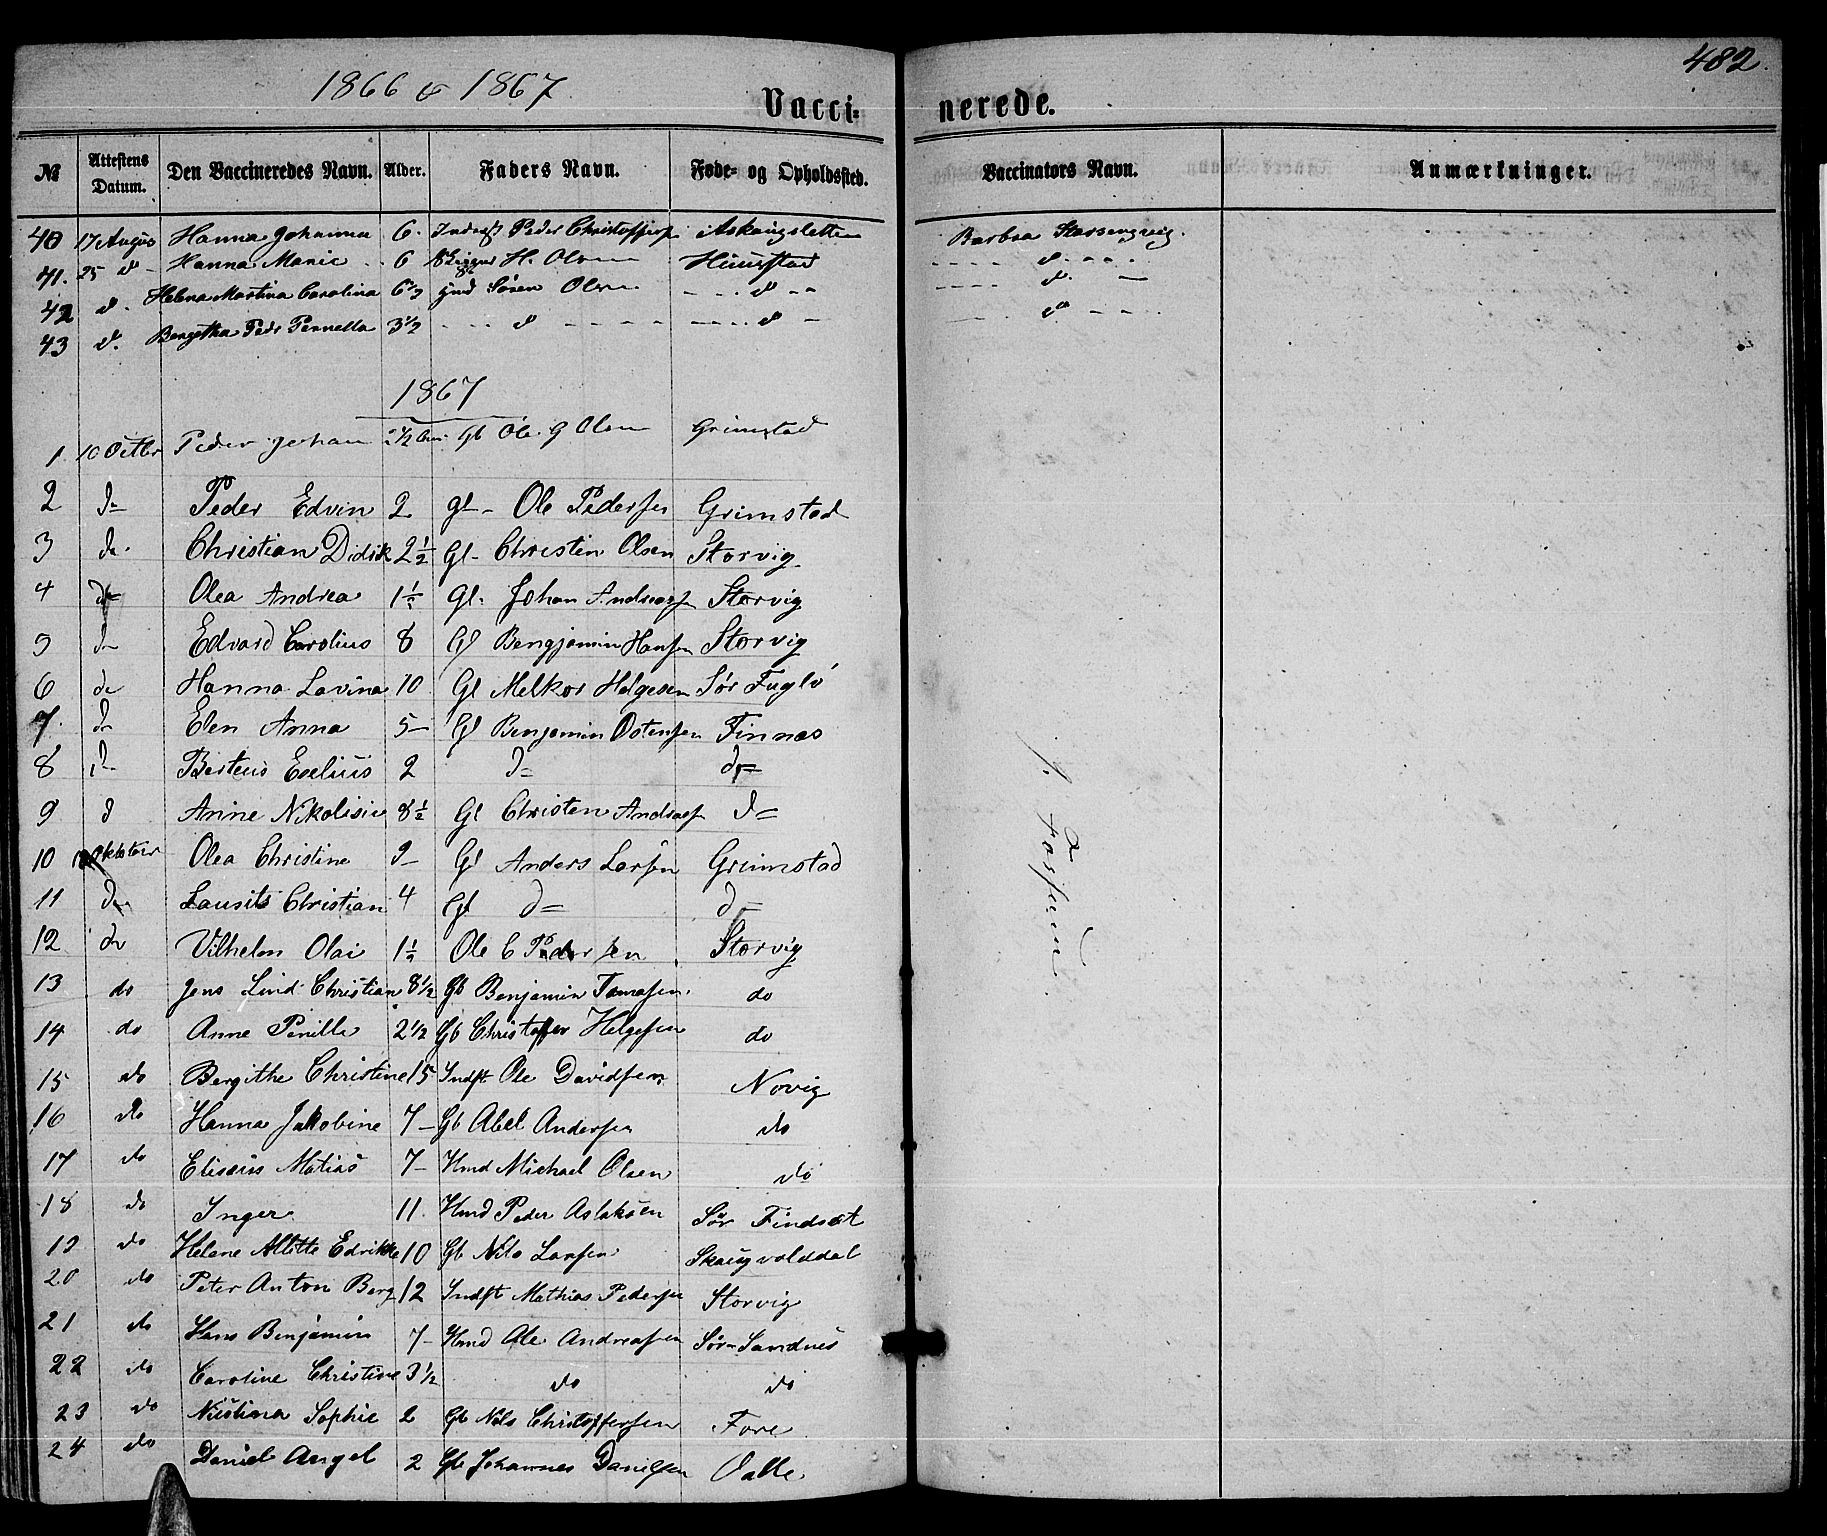 482.
1866 & 1867
Vacci= nerede.
No Attestens Datum. Den Vaccineredes Navn. Alder. Faders Navn. Føde- og Opholdssted. Vaccinators Navn. Anmærkninger.
40 17 August Hanna Johanna 6 Peder Barbra
41. 25 d Hanna Marie 6 H. Olsen d
42 d. Helena Martina Carolina 6½ Søren Olsen d d
43 d. Pernella 3½ d d d
1867
1 10 Octbr Peder Johan 2½ Gb Ole G Olsen Grimstad
2 do Peder Edvin 2 gl- Ole Pedersen Grimstad
3 do Christian Didrik 2½ Gl- Christen Olsen Storvig
4 do Olea Andrea 1½ Gl. Johan Andreasen Storvig
5 do Edvard Carolius 8 Gl Bengjamin Hansen Storvig
6 do Hanna Lavina 10 Gl Melkor Helgesen Sør Fuglö
7. do Elen Anna 5- Gl Benjamin Ostensen Finnes
8 do Berteus Eselius 2 do do
9 d Anine 8½ Gl Christen Andreas do
10 Oktober Olea Christine 9- Gl Anders Larsen Grimstad
11 do Lausits Christian 4 Gl do do
12 do Vilhelm Olai 1½ Ole C Pedersen Storvig
13 do Jens Lind Christian 8½ Gb Benjamin Tomasen do
14 do Anne Pernille 2½ Gb Christoffer Helgesen do
15 do Bergithe Christine 15 Indst Ole Davidsen Novig
16 do Hanna Jakobine 7- Gb Abel Andersen do
17 do Eliseus Matias 7- Hmd Michael Olsen do
18 do Inger 11. Hmd Peder Aslaksen Sør Findset
19 do Helene Alette Edrikke 10 Gb Nils Larsen Skaugvolddal
20 do Peter Anton Berg 12 Indst Mathias Pedersen Storvig
21 do Hans Benjamin 7- Hmd Ole Andreasen Sør-Sandnes
22 do Caroline Christine 3½ do do
23 do Sophie 2 Gb Nils Christoffersen Fore
24 do Daniel Angel 2 Gb Johannes Danielsen